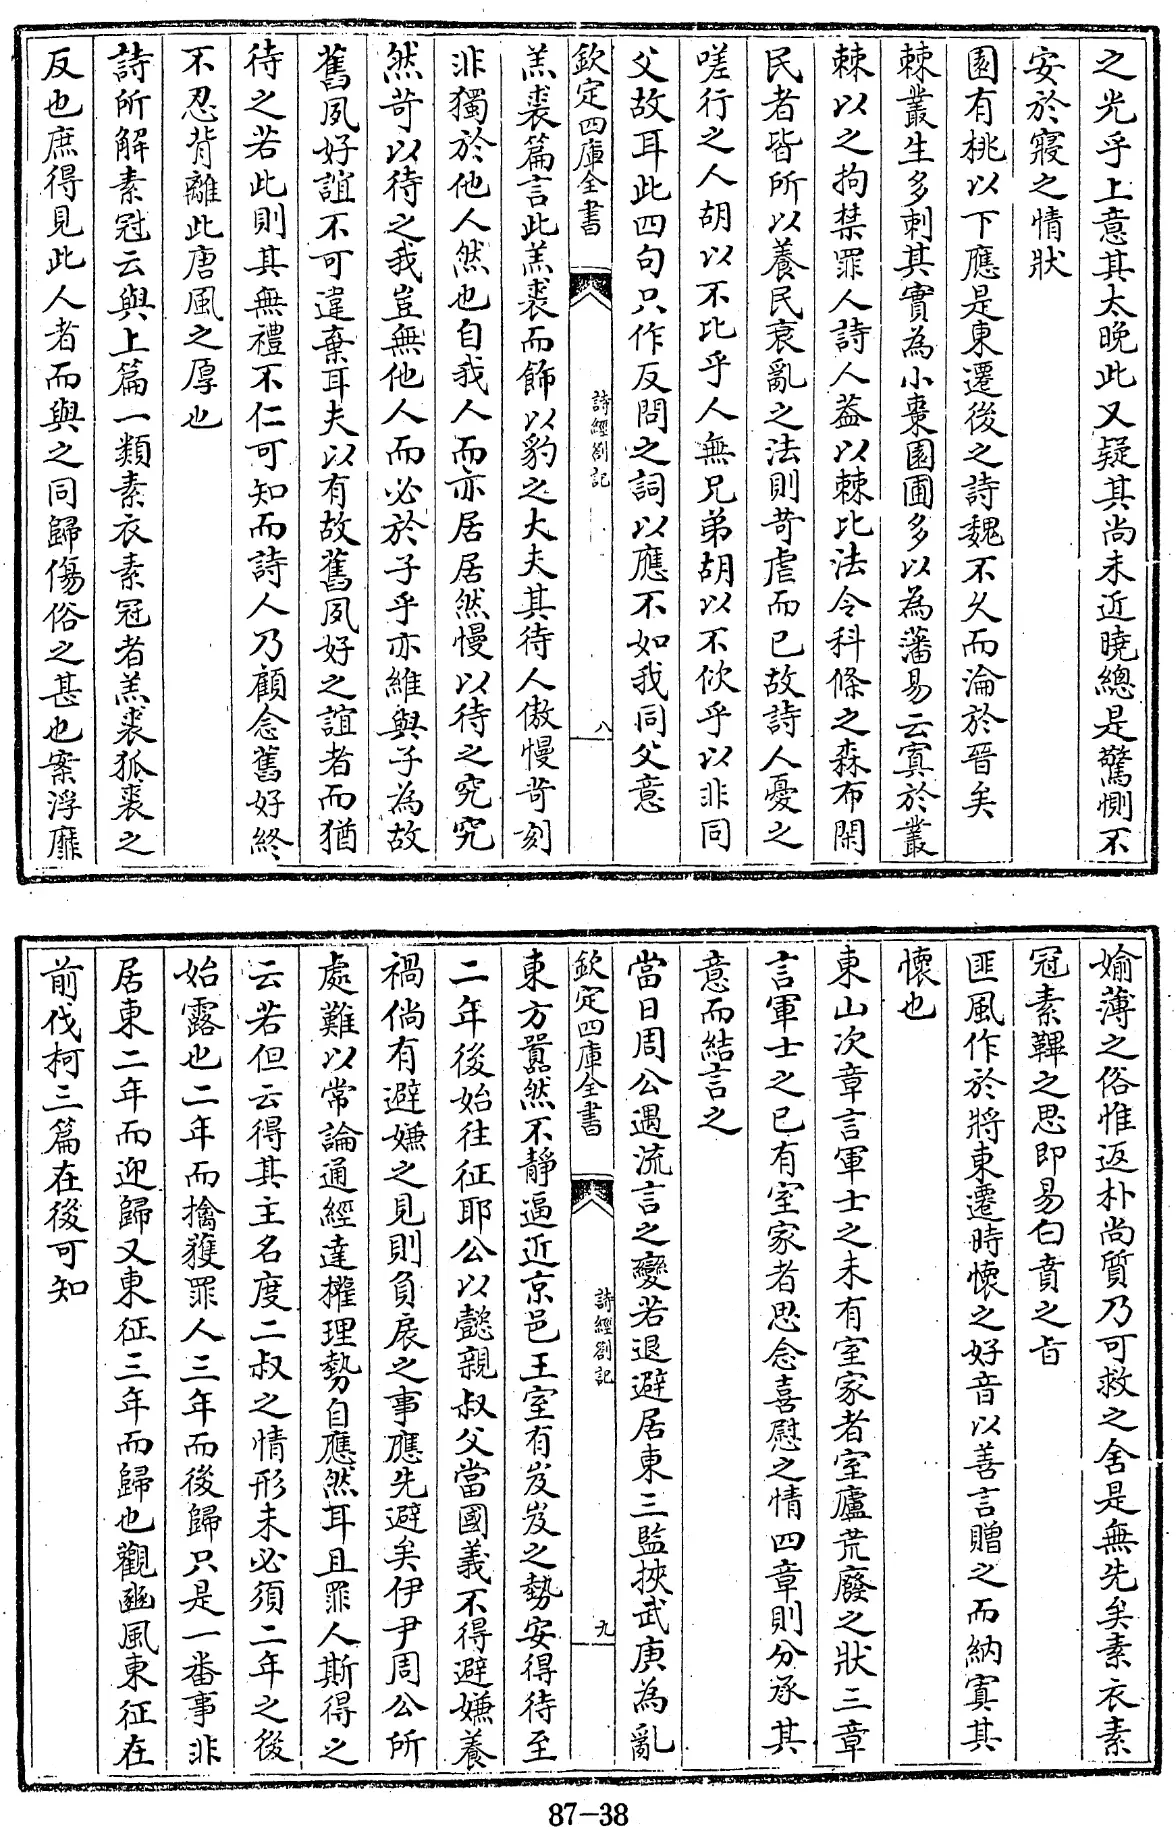 之光乎上意其太晚此又疑其尚未近曉總是驚惻不
安於寢之情狀
園有桃以下應是東遷後之詩魏不久而淪於晉矣
棘叢生多刺其實為小棗園圃多以為藩易云寘於叢
棘以之拘禁罪人詩人葢以棘比法令科條之森布閑
民者皆所以養民衰亂之法則苛虐而已故詩人憂之
嗟行之人胡以不比乎人無兄弟胡以不佽乎以非同
父故耳此四句只作反問之詞以應不如我同父意
欽定四庫全書
詩經劄記
八
羔裘篇言此羔裘而飾以豹之大夫其待人傲慢苛刻
非獨於他人然也自我人而亦居居然慢以待之究究
然苛以待之我豈無他人而必於子乎亦維與子為故
舊夙好誼不可違棄耳夫以有故舊夙好之誼者而猶
待之若此則其無禮不仁可知而詩人乃顧念舊好終
不忍背離此唐風之厚也
詩所解素冠云與上篇一類素衣素冠者羔裘狐裘之
反也庶得見此人者而與之同歸傷俗之甚也案浮靡
媮薄之俗惟返朴尚質乃可救之舍是無先矣素衣素
冠素韠之思即易白賁之旨
匪風作於將東遷時懷之好音以善言贈之而納寘其
懷也
東山次章言軍士之未有室家者室廬荒廢之狀三章
言軍士之已有室家者思念喜慰之情四章則分承其
意而結言之
當日周公遇流言之變若退避居東三監挾武庚為亂
欽定四庫全書
詩經劄記
九
東方囂然不靜逼近京邑王室有岌岌之勢安得待至
二年後始往征耶公以懿親叔父當國義不得避嫌養
禍倘有避嫌之見則負扆之事應先避矣伊尹周公所
處難以常論通經達權理勢自應然耳且罪人斯得之
云若但云得其主名度二叔之情形未必須二年之後
始露也二年而擒獲罪人三年而後歸只是一番事非
居東二年而迎歸又東征三年而歸也觀豳風東征在
前伐柯三篇在後可知
87-38